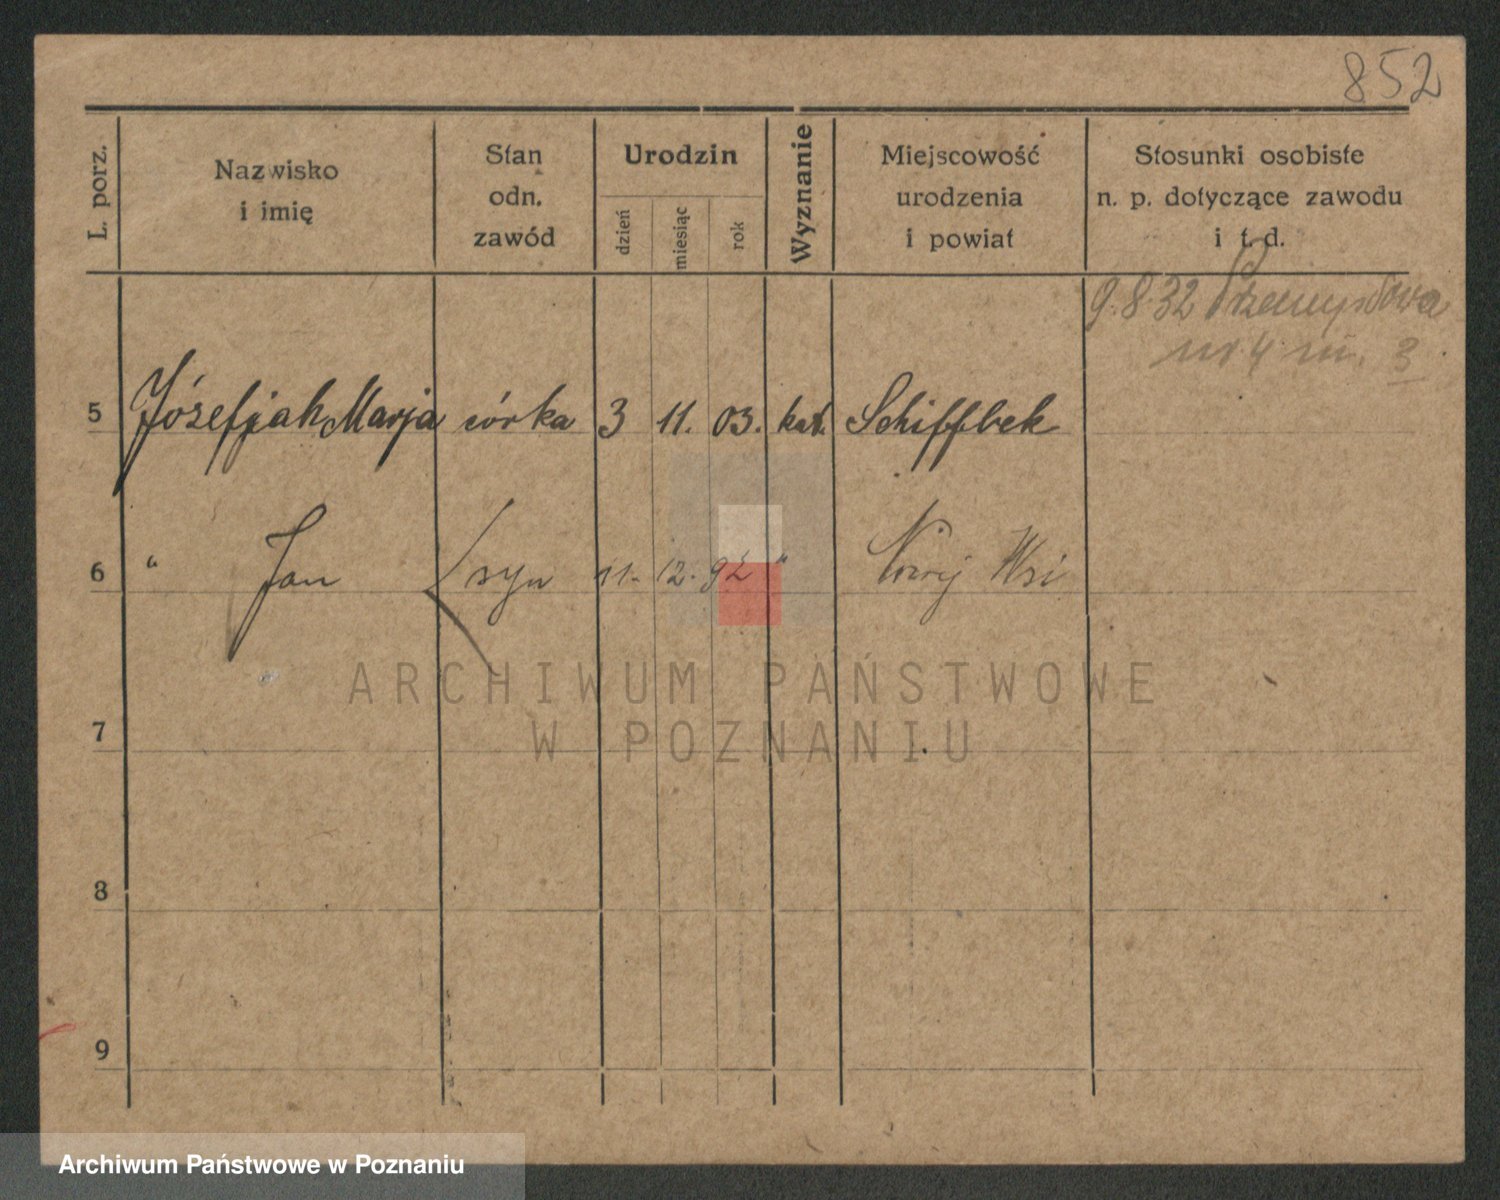 852
L. porz.
Nazwisko
i imię
Stan
odn.
zawód
Urodzin
dzień
miesiąc
rok
Wyznanie
Miejscowość
urodzenia
i powiat
Stosunki osobiste
n. p. dotyczące zawodu
i t. d.
9.8.32 Przemysłowa
nr 4 m. 3.
5 Józefjak Marja córka 3 11. 03. kat. Schiffbek
6 " Jan syn 11. 12. 92 " Nowej Wsi
7
8
9
ARCHIWUM PAŃSTWOWE
W POZNANIU
Archiwum Państwowe w Poznaniu